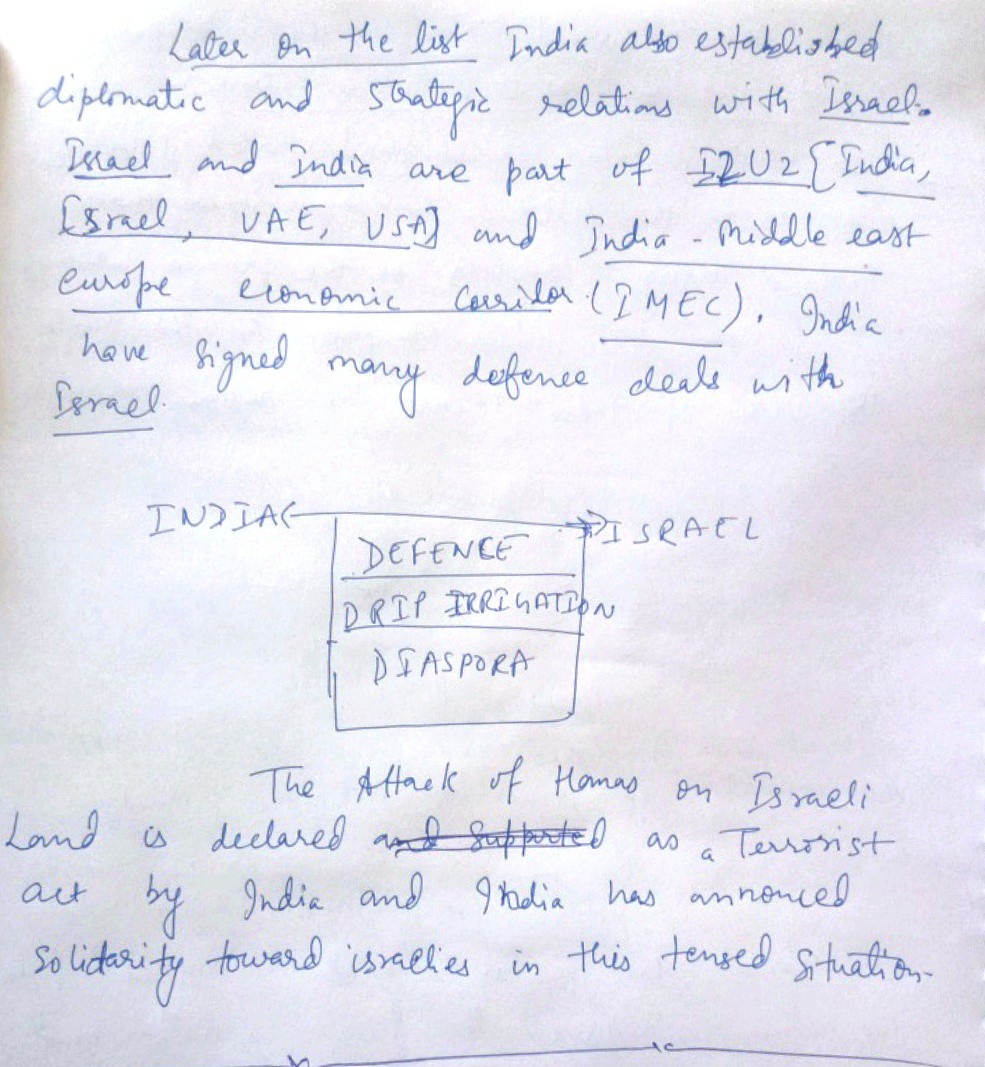 Later on the list India also established
diplomatic and Strategic relations with Israel.
Israel and India are part of I2U2 [India,
Israel, UAE, USA] and India - Middle east
europe economic Corridor (IMEC). India
have signed many defence deals with
Israel.
INDIA ISRAEL
DEFENCE
DRIP IRRIGATION
DIASPORA
The Attack of Hamas on Israeli
Land is declared and Supported as a Terrorist
act by India and India has annonced
Solidarity toward israelies in this tensed Situation.